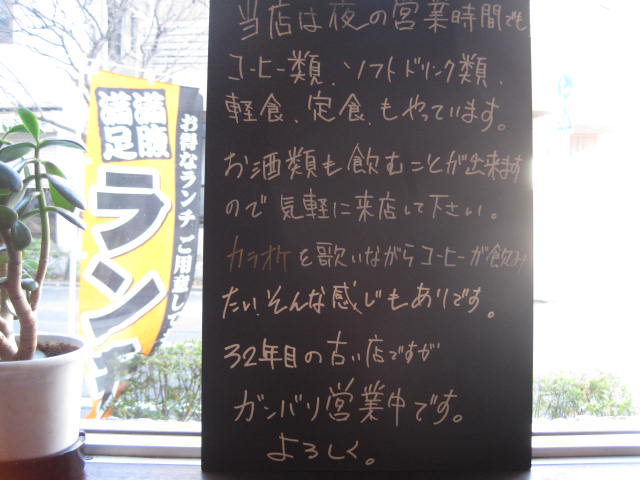 当店は夜の営業時間でも
コーヒー類、ソフトドリンク類、
軽食、定食、もやっています。
お酒類も飲むことが出来ます
ので気軽に来店して下さい。
カラオケを歌いながらコーヒーが飲み
たい、そんな感じもありです。
32年目の古い店ですが
ガンバリ営業中です。
よろしく。
満腹
満足
ランチ
お得なランチご用意して